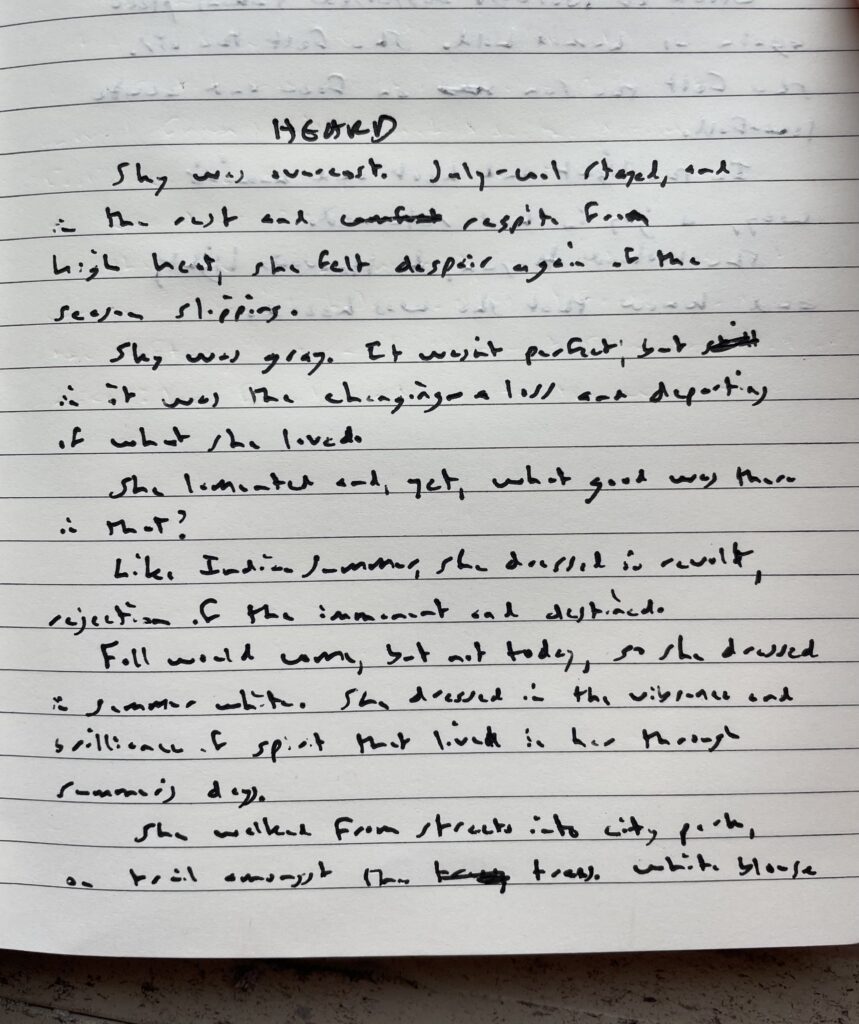 HEARD
Sky was overcast. July-cool stayed, and
in the rest and respite from
high heat, she felt despair again of the
season slipping.
Sky was gray. It wasn't perfect, but still
in it was the changing - a loss and departing
of what she loved.
She lamented and, yet, what good was there
in that?
Like Indian Summer, she dressed in revolt,
rejection of the immenent and destined.
Fall would come, but not today, so she dressed
in summer white. She dressed in the vibrance and
brilliance of spirit that lived in her through
summer's days.
She walked from streets into city park,
on trail amongst the trees. White blouse